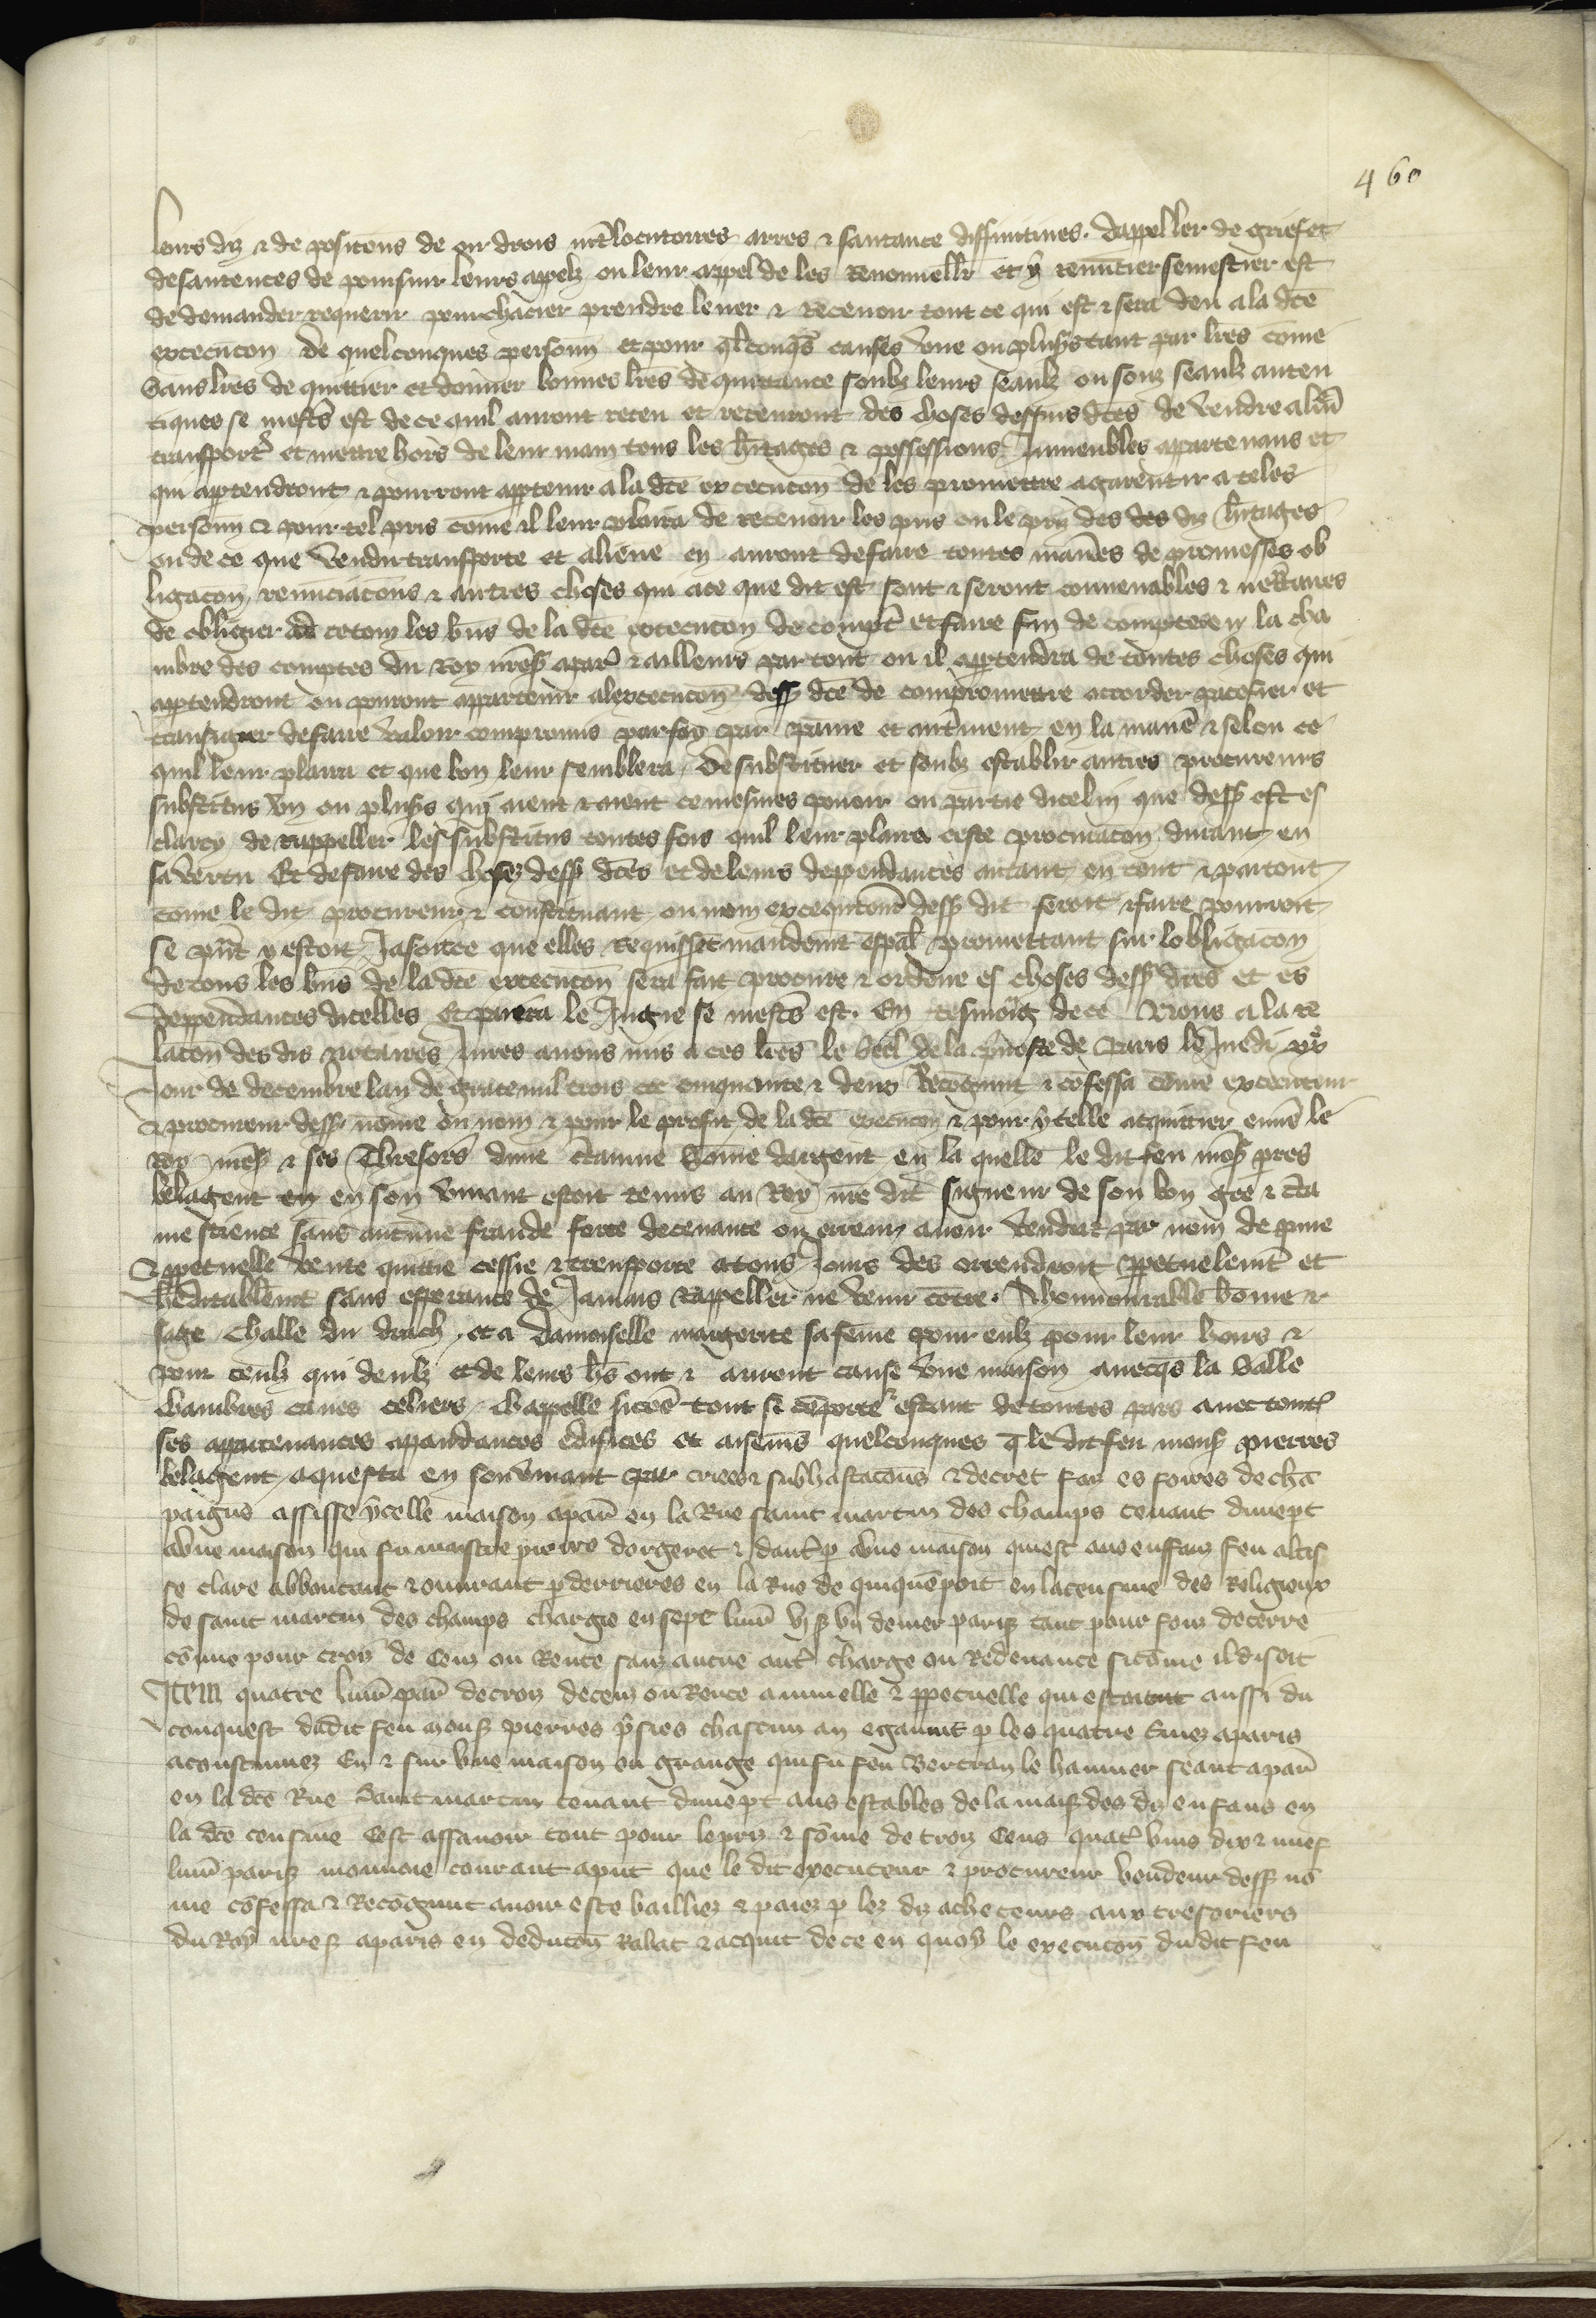 460
leurs diz & de posicons de oir drois int'locutoires arres & santance diffinitives. dappeller de grief et
de santences de poursuir leurs appelz ou leur appel de les renouveller et y renuncier se mestier est
de demander requerir pourchacier prendre lever & recevoir tout ce qui est & sera deu a la dce
execucon de quelconques personn et pour qlconqs causes une ou plus's tant par lres come
sans lres de quittier et donner bonnes lres de quittance soubz leurs seaulz ou souz seaulz auten
tiques se mests est de ce quil auront receu et recevront des choses dessus dces de vendre alien
transport' et mettre hors de leur main tous les h'itages & possessions inmeubles appartenans et
qui app'tendront & pourront app'tenir a la dce execucon de les promettre a garentir a teles
personn & pour tel pris come il leur plaira de recevoir les pris ou le priz des des diz h'itages
ou de ce que vendu transporte et aliene en auront de faire toutes man'es de promesses ob
ligacon renunciacons & autres choses qui a ce que dit est sont & seront convenables & necess'aires
de obligier ad ce tous les biens de la dce execucon de compt' et faire fin de comptes en la cha
mbre des comptes du Roy nres' a par' & ailleurs par tout ou il app'tendra de toutes choses qui
app'tendront ou pouront appartenir a lexecucon dess' dce de compromettre accorder pacefier et
transiger de faire valoir compromis par foy par paine et aut'ment en la mane' & selon ce
quil leur plaira et que bon leur semblera, de substituer et soubz establir autres procureurs
substitus un ou plus's qui aient & aient ce mesmes povoir ou partie dicelui que dess' est es
clarcy de rappeller les substitus toutes fois quil leur plaira ceste procuracon durant en
sa vertu Et de faire des choses dess' dces et de leurs deppendances autant en tout & partout
come le dit procureur & constituant ou nom execqutoire dess' dit feroit & faire pourroit
se pnt y estoit Ja soit ce que elles requissent mandemt espal promettant sur lobligacon
de tous les bns de la dce execucon sera fait procure & ordene es choses dess' dces et es
deppendances dicelles Et paiera le Jugie se mests est. En tesmoig de ce Nous a la re
lacon des dis notaires Jures avons mis a ces lres le scel de la prevoste de Paris le Juedi xxe
Jour de decembre lan de grace mil trois cec cinquante & deuz Recognut & confessa come executeur
& procureur dess' nome ou nom & pour le profit de la dce execucon & pour ycelle acquittier envs le
Roy nres' & ses Thresors dune c'taine some dargent en la quelle le dit feu mos' pres
belagent en en son vivant estoit tenus au Roy nre dit signeur de son bon gre & c'ta
ine science sans aucune fraude force decevance ou erreur avoir vendu & par nom de pure
& ppetuelle vente quittie cessie & transporte a tous Jours des orrendroit ppetuelemt et
heditablemt sans esperance de Jamais rappeller ne venir contre. A honnourable home &
sage Challe du drach, et a damoiselle margerite sa feme pour eulz pour leur hoirs &
pour ceulz qui deulz et de leurs hs ont & auront cause une maison avecqs la salle
chambres caves celiers chappelle sicos tout se comporte estant de toutes pars avec toutes
ses appartenances apandances edifices et aisemens quelconques q le dit feu mons' pierres
belagent aquesta en son vivant par criees & subhastacons & decret fait es foires de cha
paigne assisse ycelle maison a par' en la Rue saint martin des champs tenant dune pt
a une maison qui fu maistre pierre dorgeret & daut' p' a une maison qui est aus enffanz feu alis
se clare abboutant & ouvrant p derrieres en la Rue de quiquenpoit en la censive des Religieux
de saint martin des champs chargie en sept livr' vi s' un denier pariz tant pour fonz de terre
come pour croiz de cenz ou Rente sanz aucune aut' charge ou Redevance sicome il disoit
Item quatre livr' par' de croiz de cenz ou Rente annuelle & ppetuelle qui estoient aussi du
conquest dudit feu mons' pierres prises chascun an egaumt p les quatre t'mes a paris
acoustumez En & sur une maison ou grange qui fu feu Bertran le hanuier seant a par'
en la dce Rue saint martin tenant dune pt aus estables de la maison des diz enfans en
la dce censive Cest assavoir tout pour le priz & some de troiz Cens quat' vins dix & nuef
livr' pariz monnoie courant a pnt que le dit executeur & procureur vendeur dess' no
me confessa & Recognut avoir este bailliez & paiez p les diz acheteurs aux tresoriers
du Roy nres' a paris en deducon Rabat & acquit de ce en quoy le execucon dudit feu